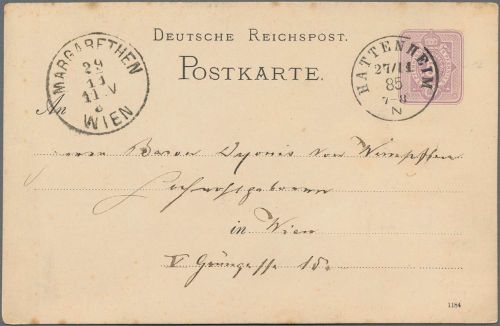 DEUTSCHE REICHSPOST.
POSTKARTE.
MARGARETHEN
29
11
WIEN
HATTENHEIM
27/11
85
7-8
N
An
Herrn Baron Dyonis von Wimpffen
Hochwohlgeboren
in Wien
V Grüngasse
1184